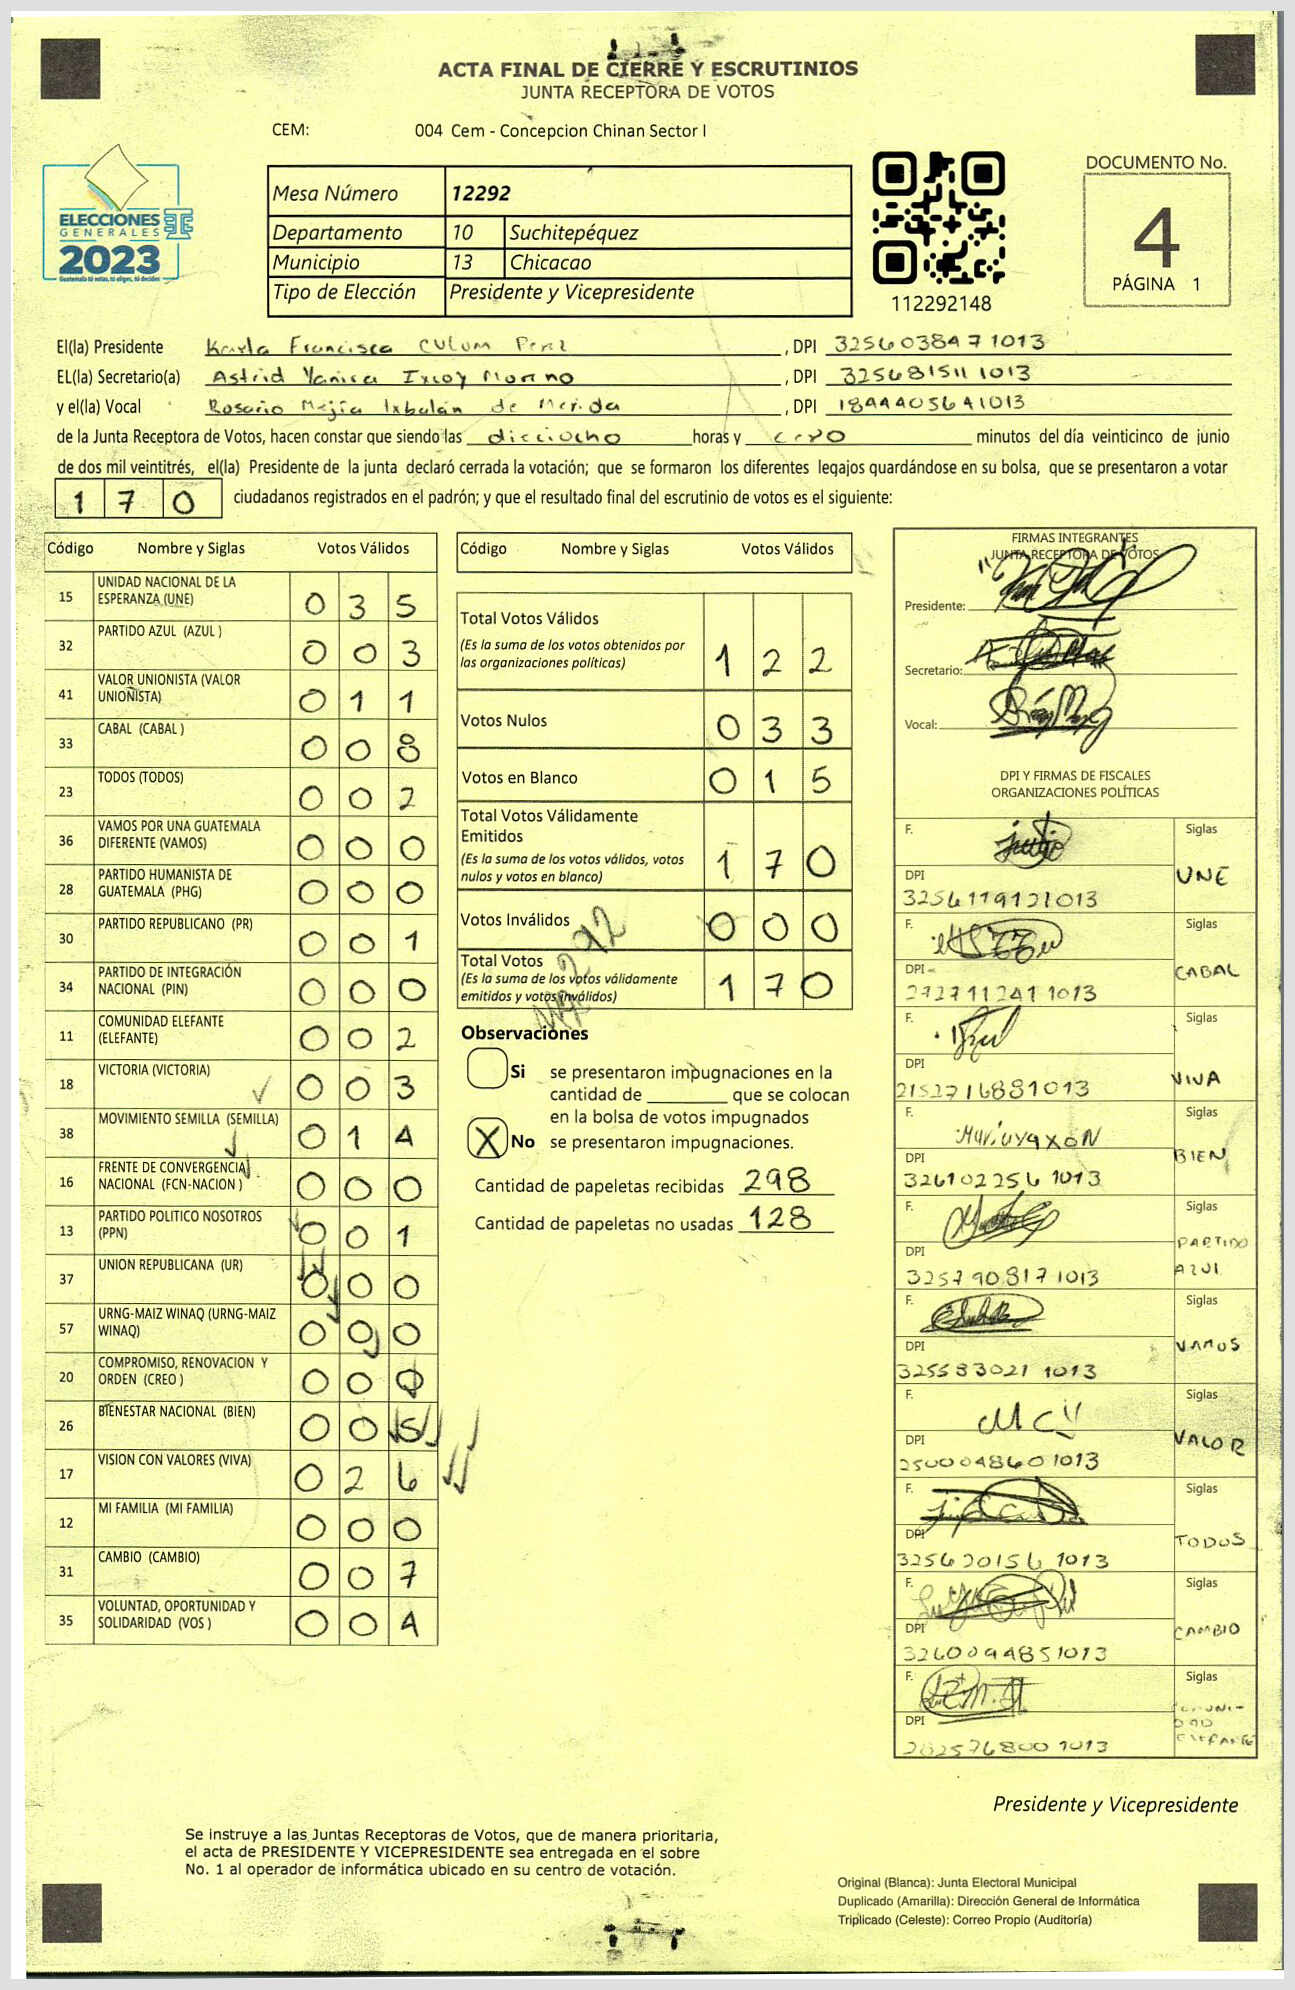 ACTA FINAL DE CIERRE Y ESCRUTINIOS
JUNTA RECEPTORA DE VOTOS
CEM: 004 Cem - Concepcion Chinan Sector I
ELECCIONES
GENERALES
2023
Guatemala tú votas, tú eliges, tú decides
Mesa Número 12292
Departamento 10 Suchitepéquez
Municipio 13 Chicacao
Tipo de Elección Presidente y Vicepresidente
112292148
DOCUMENTO No.
4
PÁGINA 1
El(la) Presidente Karla Francisca Culum Perz, DPI 3256038471013
EL(la) Secretario(a) Astrid Yanira Ixcoy Moreno, DPI 3256815111013
y el(la) Vocal Rosario Mejía Ixbalán de Merida, DPI 1844405641013
de la Junta Receptora de Votos, hacen constar que siendo las dieciocho horas y cero minutos del día veinticinco de junio
de dos mil veintitrés, el(la) Presidente de la junta declaró cerrada la votación; que se formaron los diferentes legajos quardándose en su bolsa, que se presentaron a votar
170 ciudadanos registrados en el padrón; y que el resultado final del escrutinio de votos es el siguiente:
Código Nombre y Siglas Votos Válidos
15 UNIDAD NACIONAL DE LA ESPERANZA (UNE) 035
32 PARTIDO AZUL (AZUL ) 003
41 VALOR UNIONISTA (VALOR UNIONISTA) 011
33 CABAL (CABAL ) 008
23 TODOS (TODOS) 002
36 VAMOS POR UNA GUATEMALA DIFERENTE (VAMOS) 000
28 PARTIDO HUMANISTA DE GUATEMALA (PHG) 000
30 PARTIDO REPUBLICANO (PR) 001
34 PARTIDO DE INTEGRACIÓN NACIONAL (PIN) 000
11 COMUNIDAD ELEFANTE (ELEFANTE) 002
18 VICTORIA (VICTORIA) 003
38 MOVIMIENTO SEMILLA (SEMILLA) 014
16 FRENTE DE CONVERGENCIA NACIONAL (FCN-NACION ) 000
13 PARTIDO POLITICO NOSOTROS (PPN) 001
37 UNION REPUBLICANA (UR) 000
57 URNG-MAIZ WINAQ (URNG-MAIZ WINAQ) 000
20 COMPROMISO, RENOVACION Y ORDEN (CREO ) 000
26 BIENESTAR NACIONAL (BIEN) 005
17 VISION CON VALORES (VIVA) 026
12 MI FAMILIA (MI FAMILIA) 000
31 CAMBIO (CAMBIO) 007
35 VOLUNTAD, OPORTUNIDAD Y SOLIDARIDAD (VOS ) 004
Código Nombre y Siglas Votos Válidos
Total Votos Válidos
(Es la suma de los votos obtenidos por las organizaciones políticas) 122
Votos Nulos 033
Votos en Blanco 015
Total Votos Válidamente Emitidos
(Es la suma de los votos válidos, votos nulos y votos en blanco) 170
Votos Inválidos 000
Total Votos
(Es la suma de los votos válidamente emitidos y votos inválidos) 170
Observaciones
Si se presentaron impugnaciones en la
cantidad de ________ que se colocan
en la bolsa de votos impugnados
X No se presentaron impugnaciones.
Cantidad de papeletas recibidas 298
Cantidad de papeletas no usadas 128
FIRMAS INTEGRANTES
JUNTA RECEPTORA DE VOTOS
Presidente:
Secretario:
Vocal:
DPI Y FIRMAS DE FISCALES
ORGANIZACIONES POLÍTICAS
F. Siglas
DPI UNE
3256119121013
F. Siglas
DPI CABAL
2727112411013
F. Siglas
DPI VIVA
2152716881013
F. Siglas
DPI BIEN
3261022561013
F. Siglas
DPI PARTIDO AZUL
3257908171013
F. Siglas
DPI VAMOS
3255830211013
F. Siglas
DPI VALOR
2500048601013
F. Siglas
DPI TODOS
3256201561013
F. Siglas
DPI CAMBIO
3260094851013
F. Siglas
DPI
2025768001013
Presidente y Vicepresidente
Se instruye a las Juntas Receptoras de Votos, que de manera prioritaria,
el acta de PRESIDENTE Y VICEPRESIDENTE sea entregada en el sobre
No. 1 al operador de informática ubicado en su centro de votación.
Original (Blanca): Junta Electoral Municipal
Duplicado (Amarilla): Dirección General de Informática
Triplicado (Celeste): Correo Propio (Auditoría)